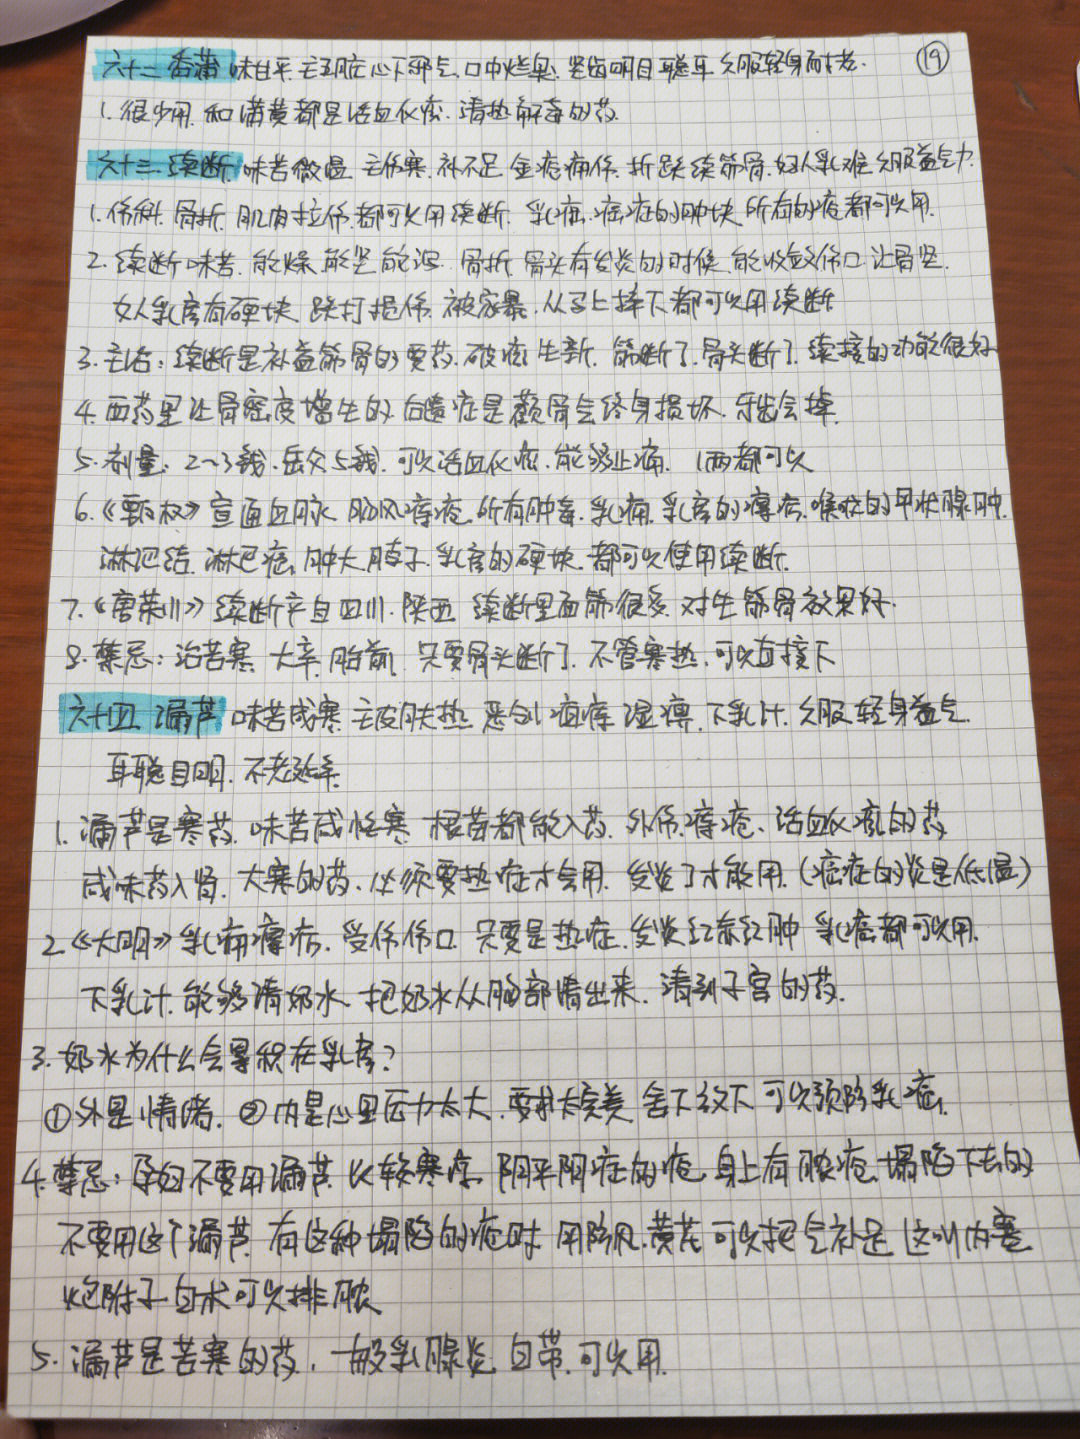 六十二 香蒲 味甘平.主五脏心下邪气.口中烂臭.坚齿明目聪耳.久服轻身耐老. ⑲
1.很少用.和蒲黄都是活血化瘀.清热解毒的药.
六十三 续断.味苦微温 主伤寒.补不足 金疮痈伤.折跌续筋骨.妇人乳难 久服益气力.
1.伤科.骨折.肌肉拉伤.都可以用续断.乳癌.癌症的肿块.所有的疮都可以用.
2.续断味苦.能燥能坚能泻.骨折.骨头有发炎的时候.能收敛伤口.让骨坚.
女人乳房有硬块.跌打损伤.被家暴.从马上摔下都可以用续断
3.主治:续断是补益筋骨的要药.破瘀生新.筋断了.骨头断了.续接的功能很好
4.西药里让骨密度增生的后遗症是颧骨会终身损坏.牙齿会掉.
5.剂量.2~3钱.岳父5钱.可以活血化瘀.能够止痛.1两都可以
6.《甄权》宣通血脉 所有肿毒.乳痈.乳房的瘰疬.喉咙的甲状腺肿.
淋巴结.淋巴癌.肿大脖子.乳房的硬块.都可以使用续断.
7.《唐荣川》续断产自四川.陕西 续断里面筋很多.对生筋骨效果好.
8.禁忌:治苦寒 大辛.胎前.只要骨头断了.不管寒热.可以直接下
六十四 漏芦 味苦咸寒 主皮肤热.恶创疽痔.湿痹.下乳汁.久服轻身益气.
耳聪目明.不老延年.
1.漏芦是寒药.味苦咸性寒 根苗都能入药.外伤.痔疮、活血化瘀的药
咸味药入肾.大寒的药.必须要热症才会用.发炎了才能用.(癌症的炎是低温)
2.《大明》乳痈瘰疬.受伤伤口 只要是热症.发炎红赤红肿 乳癌都可以用.
下乳汁.能够清奶水.把奶水从胸部清出来.清到子宫的药.
3.奶水为什么会累积在乳房?
①外是情绪.②内是心里压力太大.要求太完美 舍下放下可以预防乳癌.
4.禁忌:孕妇不要用漏芦.比较寒凉.阴平阴症的疮.身上有脓疮.塌陷下去的
不要用这个漏芦.有这种塌陷的疮时.用防风.黄芪可以把它补足 这叫内塞
炮附子.白术可以排脓
5.漏芦是苦寒的药.一般乳腺炎.白带.可以用.